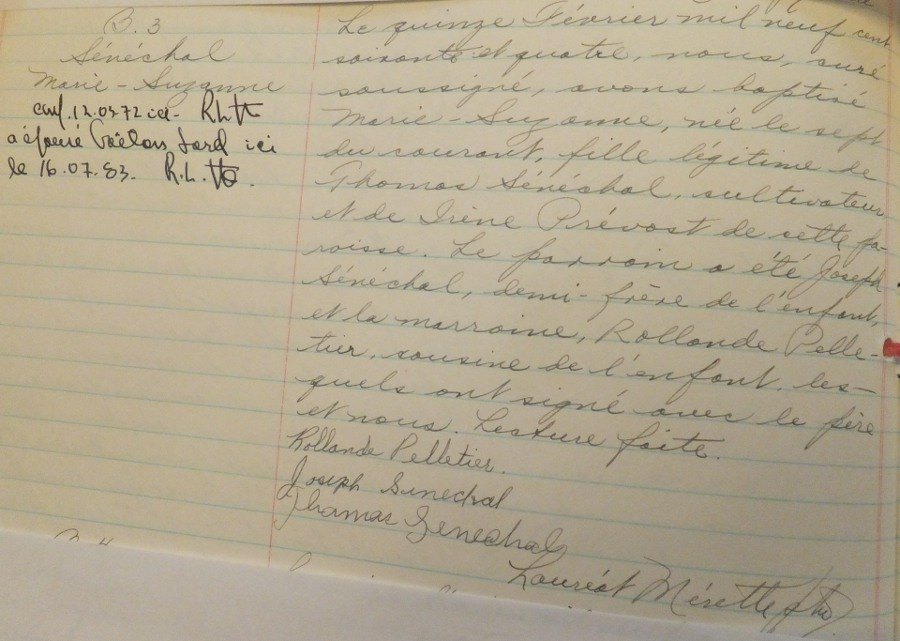 B. 3
Sénéchal
Marie-Suzanne
conf. 12.03.72 ici - R.L.
a épousé Gord ici
le 16.07.83. R.L.
Le quinze Février mil neuf cent
soixante et quatre, nous, curé
soussigné, avons baptisé
Marie-Suzanne, née le sept
du courant, fille légitime de
Thomas Sénéchal, cultivateur
et de Irène Prévost de cette pa-
roisse. Le parrain a été Joseph
Sénéchal, demi-frère de l'enfant,
et la marraine, Rollande Pelle-
tier, cousine de l'enfant, les-
quels ont signé avec le père
et nous. Lecture faite.
Rollande Pelletier.
Joseph Senechal
Thomas Senechal
Lauréat Ptre